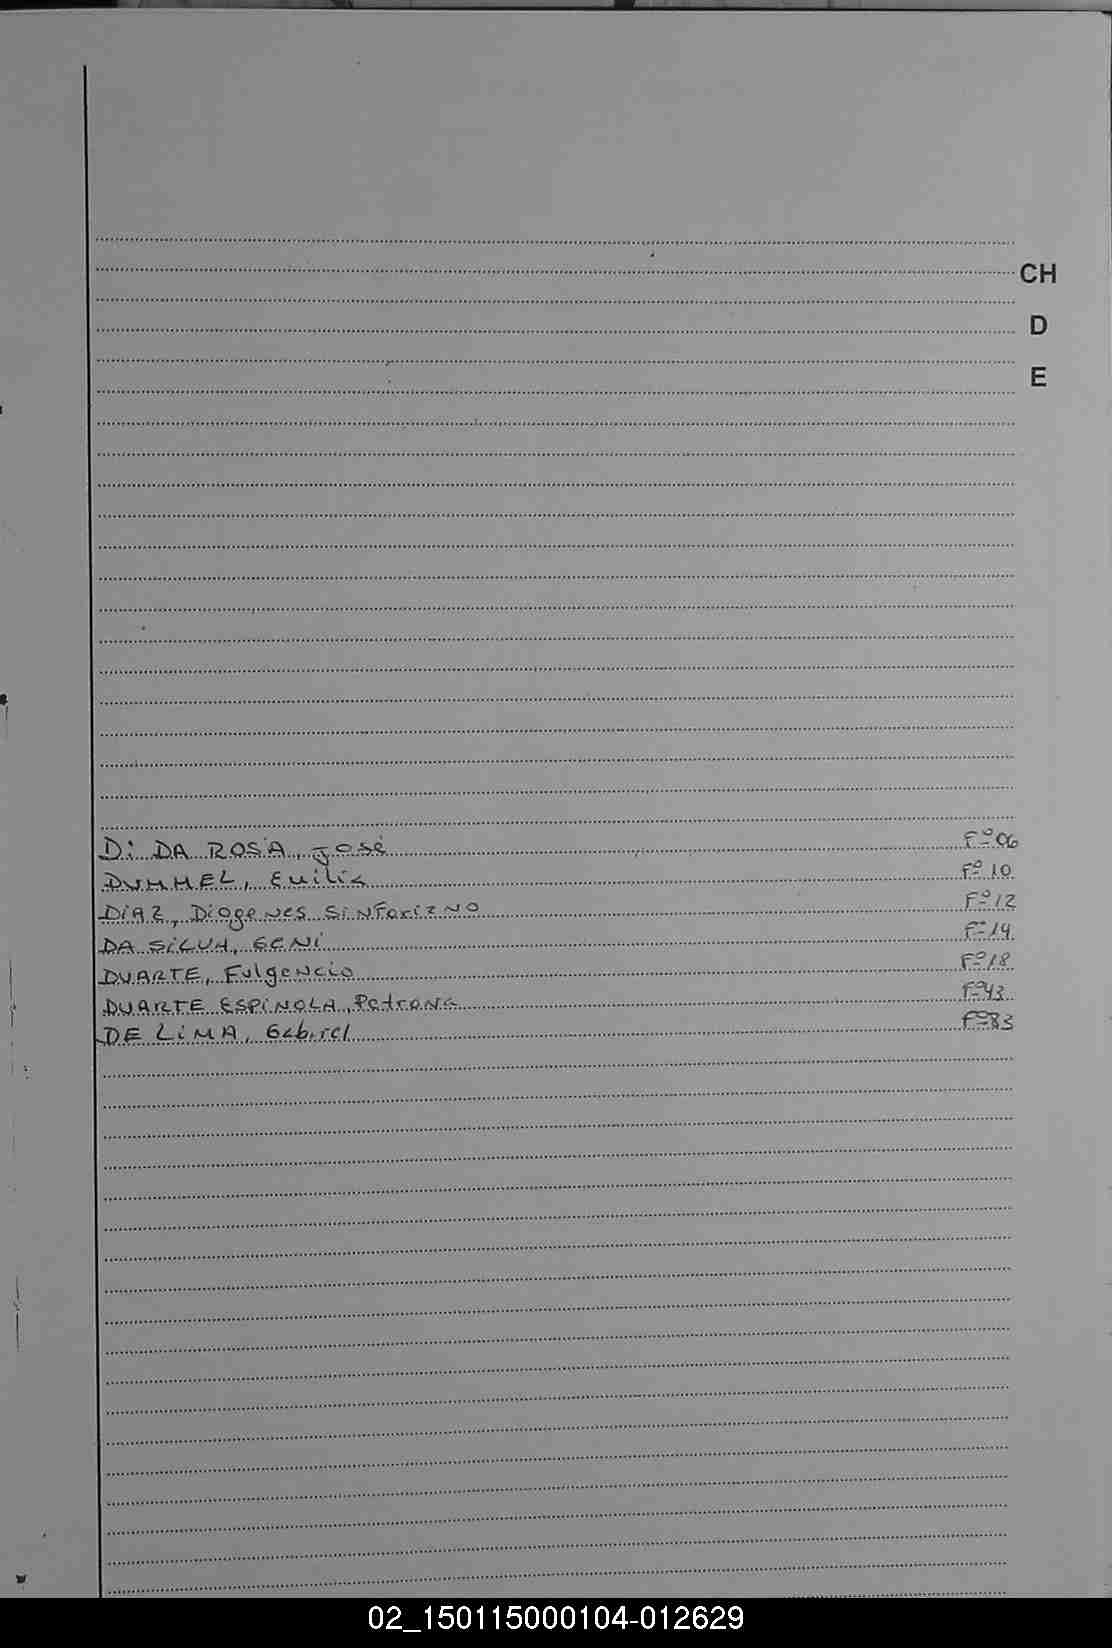 CH
D
E
D: DA ROSA, José Fº 06
DUMMEL, Emilia Fº 10
DIAZ, Diogenes Sinforiano Fº 12
DA SILVA, GENI Fº 14
DUARTE, Fulgencio Fº 18
DUARTE ESPINOLA, Petrona Fº 43
DE LIMA, Gabriel Fº 83
02_150115000104-012629